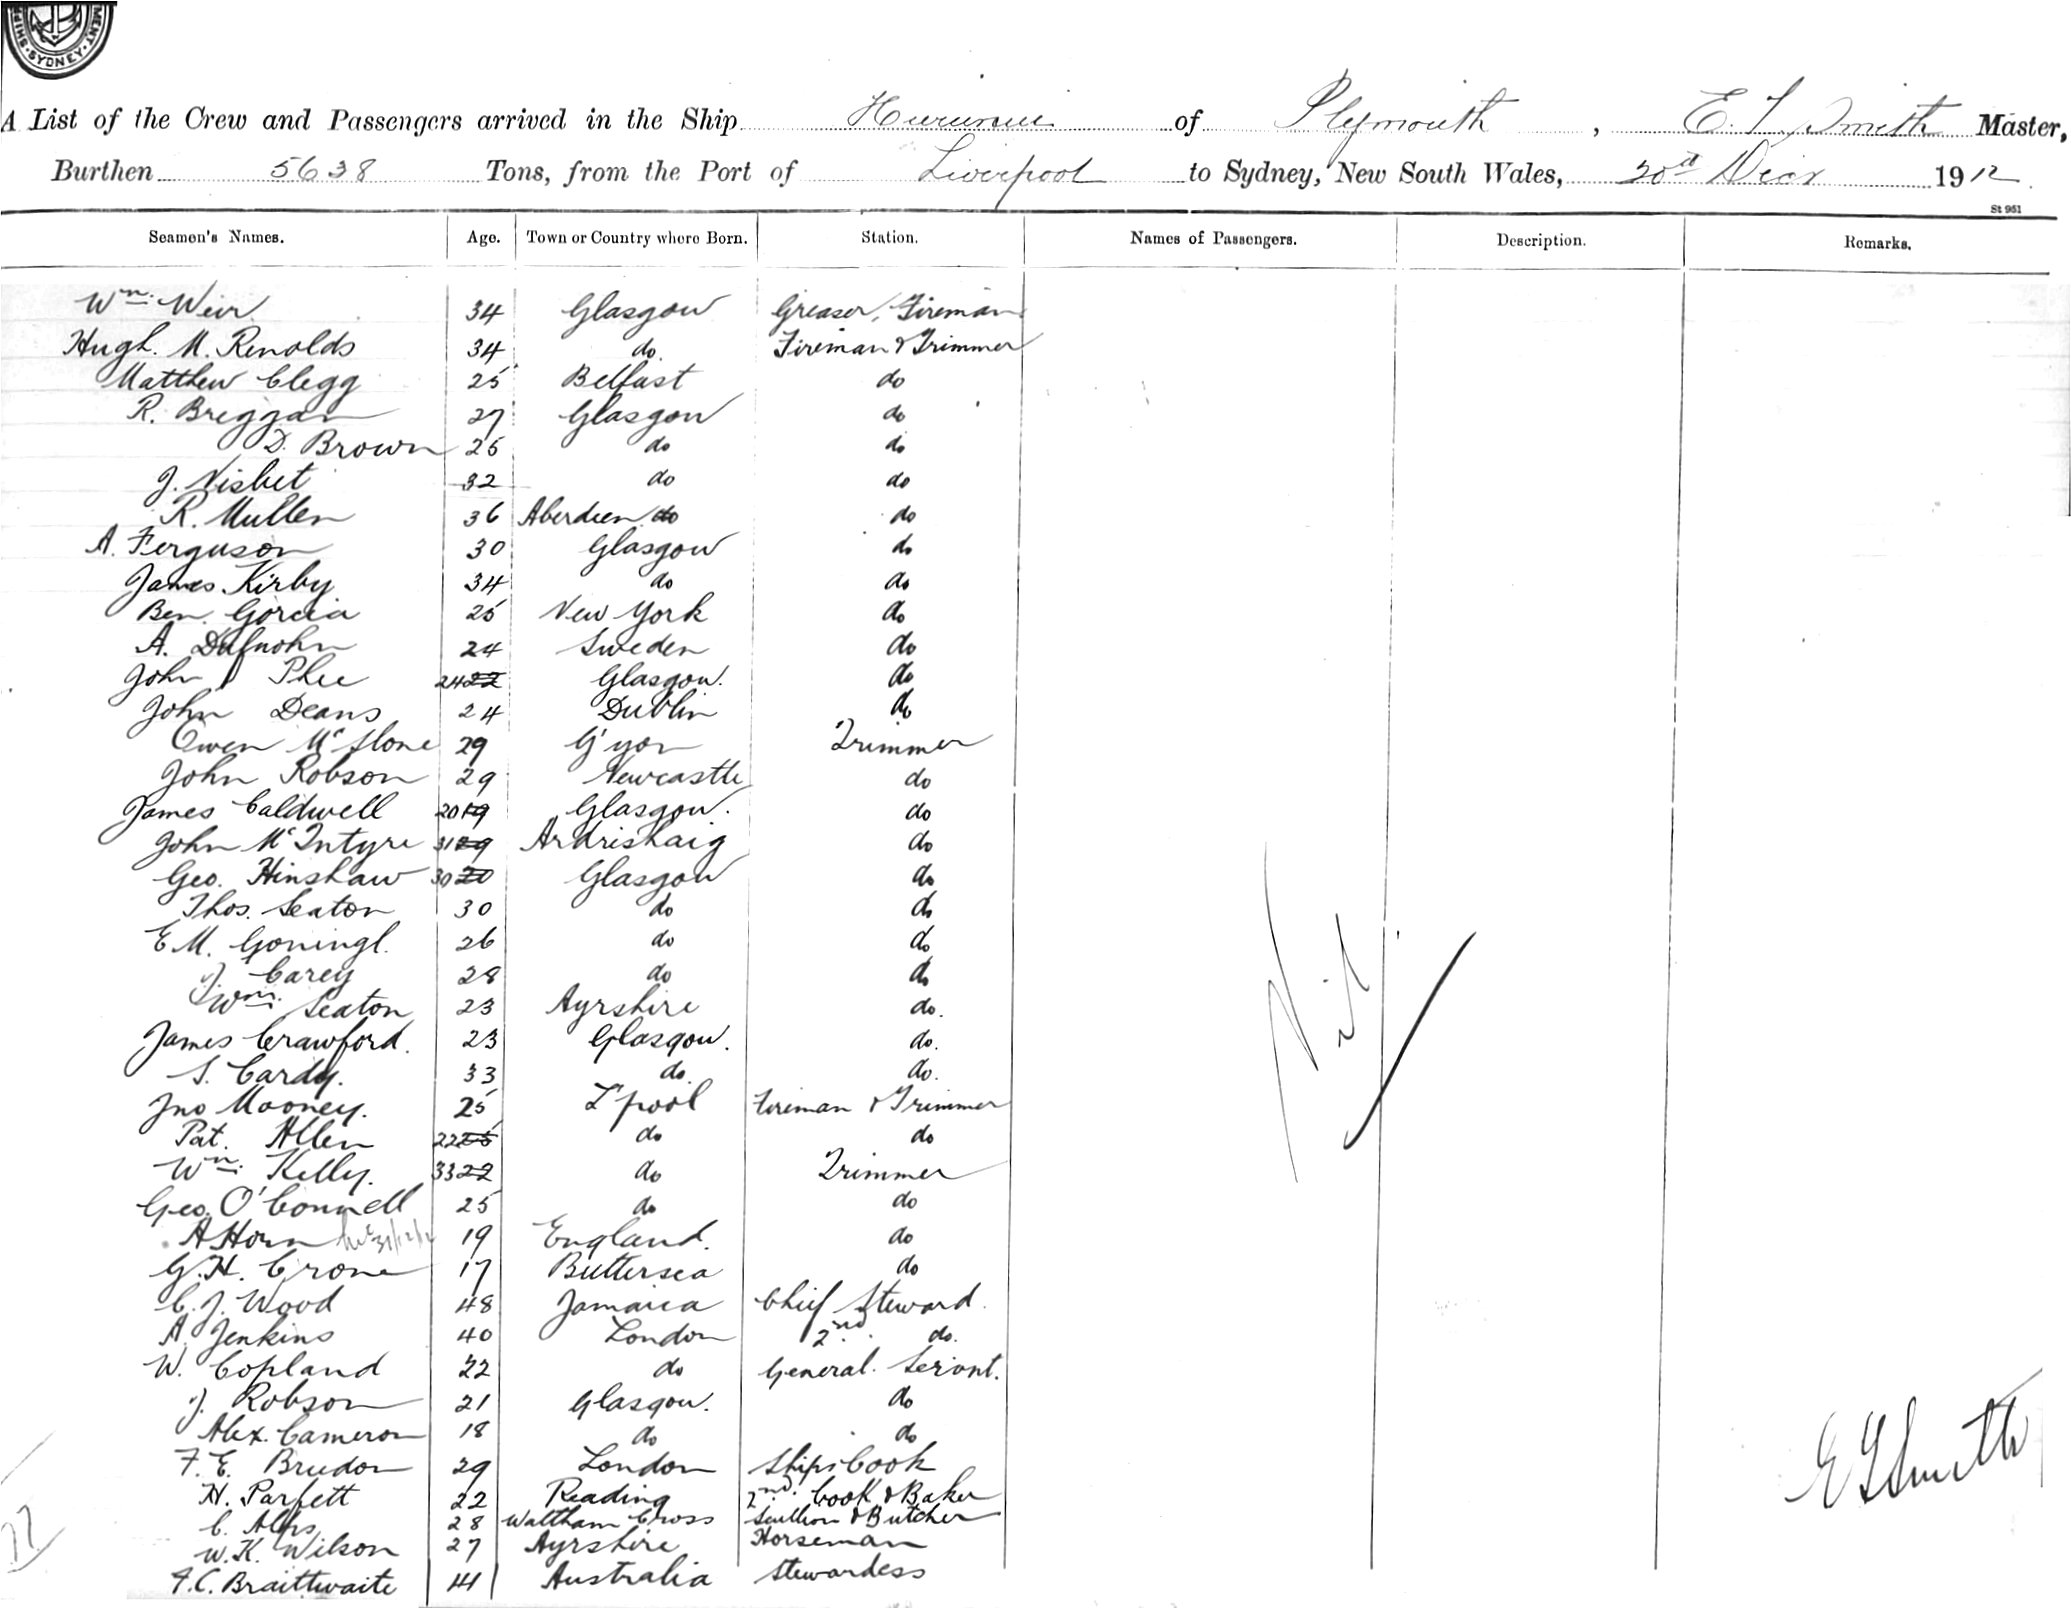 SHIPPING
MENT. SYDNEY.
A List of the Crew and Passengers arrived in the Ship Hurunui of Plymouth, E. F. Smith Master,
Burthen 5638 Tons, from the Port of Liverpool to Sydney, New South Wales, 1912
St 951
Seamen's Names. Age. Town or Country where Born. Station. Names of Passengers. Description. Remarks.
Wm. Weir 34 Glasgow Greaser, Fireman
Hugh. M. Renolds 34 do. Fireman & Trimmer
Matthew Clegg 25 Belfast do
R. Breggan 27 Glasgow do
D. Brown 25 do do
J. Nisbet 32 do do
R. Mullen 36 Aberdeen do do
A. Ferguson 30 Glasgow do
James Kirby 34 do do
Ben. Gorcia 25 New York do
A. 24 Sweden do
John Phee 24 22 Glasgow. do
John Deans 24 Dublin do
Owen Mc 29 Trimmer
John Robson 29 Newcastle do
James Caldwell 20 19 Glasgow. do
John McIntyre 31 29 Ardrishaig do
Geo. Hinshaw 30 20 Glasgow do
Thos. Seaton 30 do do
E M. Goningl. 26 do do
J. Carey 28 do do
Wm. Seaton 23 Ayrshire do.
James Crawford. 23 Glasgow. do.
S. Cardy. 33 do. do.
Jno Mooney. 25 L'pool Fireman & Trimmer
Pat. Allen 22 25 do do
Wm. Kelly. 33 22 do Trimmer
Geo. O'Connell 25 do do
A Horn 31/12/12 19 England. do
G. H. Crone 17 Buttersea do
C. J. Wood 48 Jamaica Chief Steward.
A. Jenkins 40 London 2nd. do.
W. Copland 22 do General. Servnt.
J. Robson 21 Glasgow. do
Alex. Cameron 18 do do
F. E. Brudon 29 London Ships Cook
H. Parfett 22 Reading 2nd. Cook & Baker
C. Alps 28 Waltham Cross Scullion & Butcher
W. K. Wilson 27 Ayrshire Horseman
F. C. Braittwaite 41 Australia Stewardess
Nil
E F Smith
77